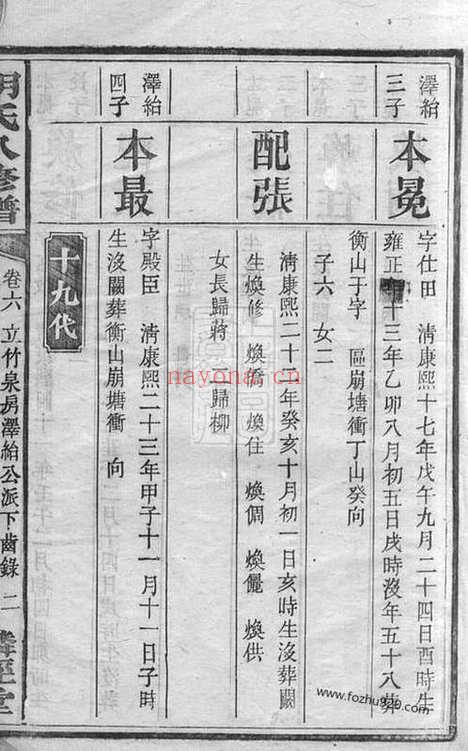 澤紿
三子
本冕
字仕田　清康熙十七年戊午九月二十四日酉時生
雍正十三年乙卯八月初五日戌時沒年五十八葬
衡山于字　區崩塘衝丁山癸向
子六　女二
配張
清康熙二十二年癸亥十月初一日亥時生沒葬闕
生煥修　煥喬　煥住　煥倜　煥儷　煥供
女長歸蔣　二歸柳
澤紿
四子
本最
字殿臣　清康熙二十三年甲子十一月十一日子時
生沒闕葬衡山崩塘衝　向
十九代
氏八修譜
卷六　立竹泉房澤紿公派下齒錄　二
堂
nayona.cn
www.fozhu920.com